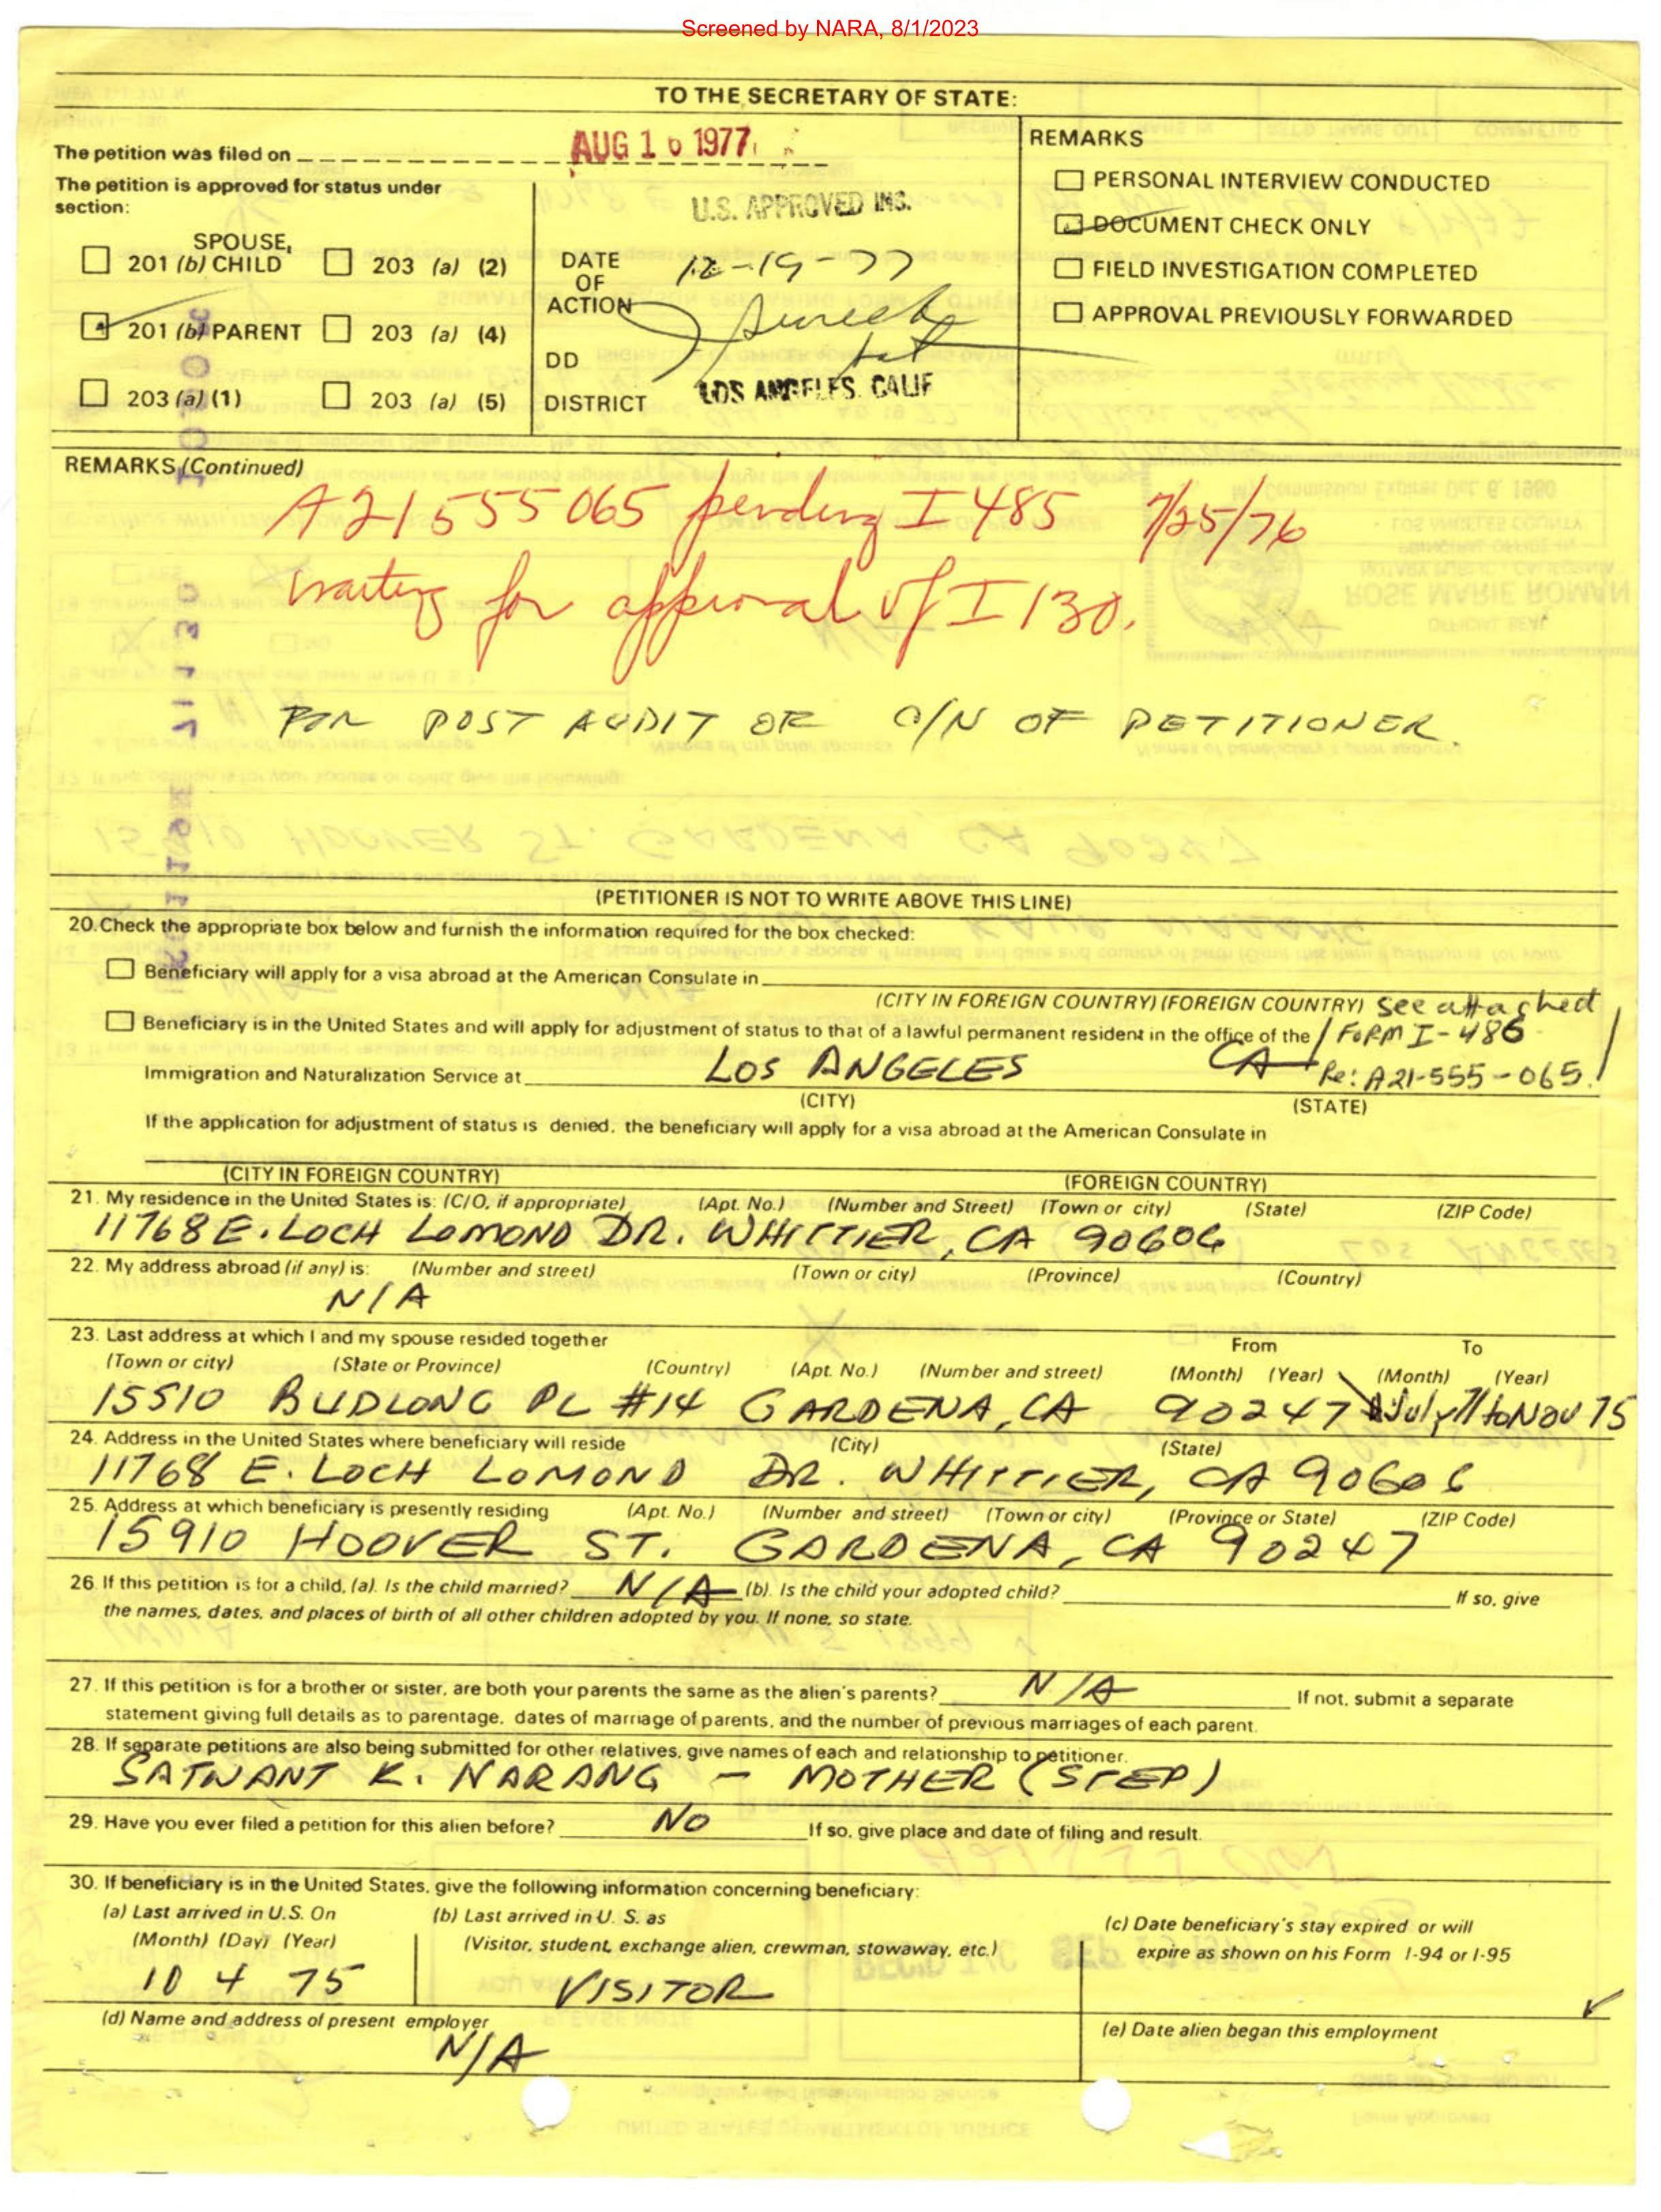 Screened by NARA, 8/1/2023
TO THE SECRETARY OF STATE:
The petition was filed on AUG 16 1977
The petition is approved for status under
section:
SPOUSE,
201 (b) CHILD 203 (a) (2)
201 (b) PARENT 203 (a) (4)
203 (a) (1) 203 (a) (5)
U.S. APPROVED INS.
DATE
OF
ACTION
12-19-77
DD
DISTRICT
LOS ANGELES. CALIF
REMARKS
PERSONAL INTERVIEW CONDUCTED
DOCUMENT CHECK ONLY
FIELD INVESTIGATION COMPLETED
APPROVAL PREVIOUSLY FORWARDED
REMARKS (Continued)
A21 555 065 pending I 485 7/25/76
waiting for approval of I 130.
FOR POST AUDIT OR O/N OF PETITIONER.
(PETITIONER IS NOT TO WRITE ABOVE THIS LINE)
20. Check the appropriate box below and furnish the information required for the box checked:
Beneficiary will apply for a visa abroad at the American Consulate in
(CITY IN FOREIGN COUNTRY) (FOREIGN COUNTRY) See attached
Beneficiary is in the United States and will apply for adjustment of status to that of a lawful permanent resident in the office of the / FORM I-486
Immigration and Naturalization Service at LOS ANGELES CA Re: A21-555-065.
(CITY) (STATE)
If the application for adjustment of status is denied, the beneficiary will apply for a visa abroad at the American Consulate in
(CITY IN FOREIGN COUNTRY) (FOREIGN COUNTRY)
21. My residence in the United States is: (C/O, if appropriate) (Apt. No.) (Number and Street) (Town or city) (State) (ZIP Code)
11768 E. LOCH LOMOND DR. WHITTIER, CA 90606
22. My address abroad (if any) is: (Number and street) (Town or city) (Province) (Country)
N/A
23. Last address at which I and my spouse resided together From To
(Town or city) (State or Province) (Country) (Apt. No.) (Number and street) (Month) (Year) (Month) (Year)
15510 BUDLONG PL #14 GARDENA, CA 90247 July 71 to Nov 75
24. Address in the United States where beneficiary will reside (City) (State)
11768 E. LOCH LOMOND DR. WHITTIER, CA 90606
25. Address at which beneficiary is presently residing (Apt. No.) (Number and street) (Town or city) (Province or State) (ZIP Code)
15910 HOOVER ST. GARDENA, CA 90247
26. If this petition is for a child, (a). Is the child married? N/A (b). Is the child your adopted child? If so, give
the names, dates, and places of birth of all other children adopted by you. If none, so state.
27. If this petition is for a brother or sister, are both your parents the same as the alien's parents? N/A If not, submit a separate
statement giving full details as to parentage, dates of marriage of parents, and the number of previous marriages of each parent.
28. If separate petitions are also being submitted for other relatives, give names of each and relationship to petitioner.
SATWANT K. NARANG - MOTHER (STEP)
29. Have you ever filed a petition for this alien before? NO If so, give place and date of filing and result.
30. If beneficiary is in the United States, give the following information concerning beneficiary:
(a) Last arrived in U.S. On
(Month) (Day) (Year)
10 4 75
(b) Last arrived in U. S. as
(Visitor, student, exchange alien, crewman, stowaway, etc.)
VISITOR
(c) Date beneficiary's stay expired or will
expire as shown on his Form I-94 or I-95
(d) Name and address of present employer
N/A
(e) Date alien began this employment